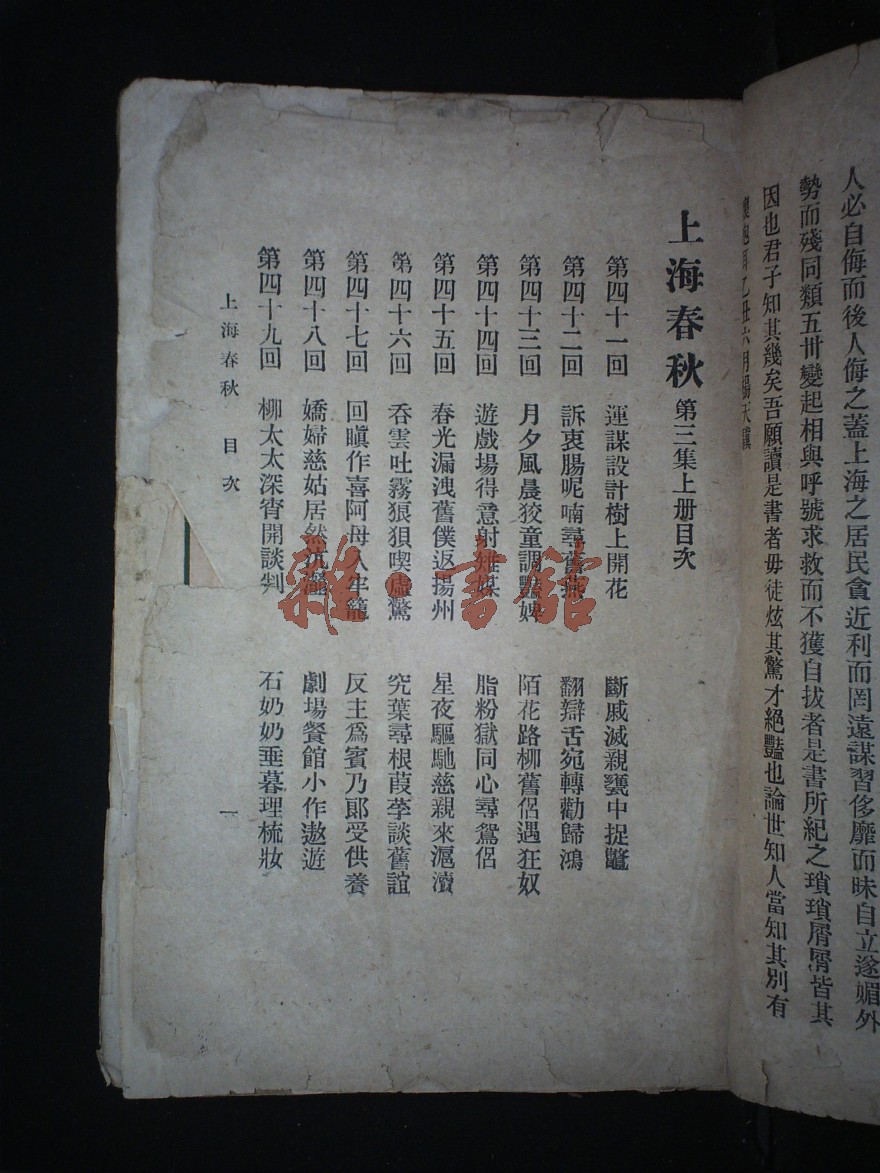 人必自侮而後人侮之蓋上海之居民貪近利而罔遠謀習侈靡而昧自立遂媚外
勢而殘同類五卅變起相與呼號求救而不獲自拔者是書所紀之瑣瑣屑屑皆其
因也君子知其幾矣吾願讀是書者毋徒炫其驚才絕豔也論世知人當知其別有
乙丑六月楊天驥
上海春秋 第三集上册目次
第四十一回 運謀設計樹上開花 斷戚滅親甕中捉鼈
第四十二回 訴衷腸呢喃尋舊燕 翻辯舌宛轉勸歸鴻
第四十三回 月夕風晨狡童調豔婢 陌花路柳舊侶遇狂奴
第四十四回 遊戲場得意射雉媒 脂粉獄同心尋鴛侶
第四十五回 春光漏洩舊僕返揚州 星夜驅馳慈親來滬瀆
第四十六回 吞雲吐霧狼狽喫虛驚 究葉尋根葭莩談舊誼
第四十七回 回瞋作喜阿母入牢籠 反主爲賓乃郎受供養
第四十八回 嬌婦慈姑居然 劇場餐館小作遨遊
第四十九回 柳太太深宵開談判 石奶奶垂暮理梳妝
上海春秋 目次 一
雜·書館